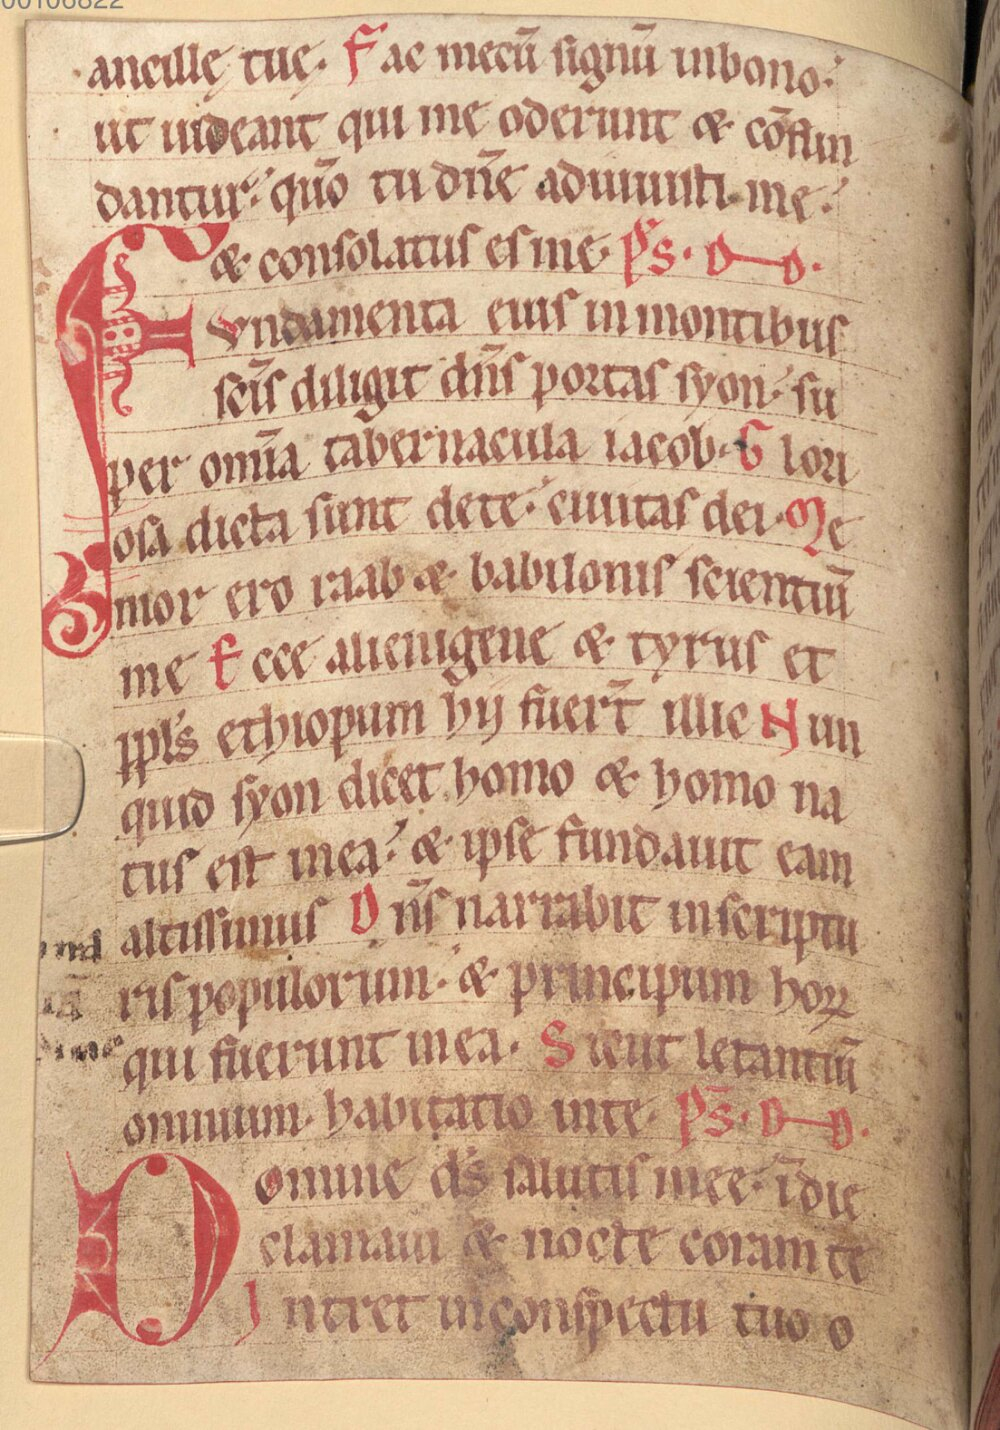 00106822
ancillę tuę. Fac mecū signū inbono.
ut uideant qui me oderunt & cōfun
dantur. qm̄o tu dn̄e adiuuisti me.
& consolatus es me. Ps. D D.
Fvndamenta eius inmontibus
scīs diligit dn̄s portas syon. su
per omīa tabernacula iacob. Glori
osa dicta sunt dete. ciuitas dei. Me
mor ero raab & babilonis scientiū
me Ecce alienigene & tyrus et
ppl̄s ethiopum hij fuer̄t illic Nun
quid syon dicet homo & homo na
tus est inea. & ipse fundauit eam
altissimus Dn̄s narrabit inscriptu
ris populorum. & principum hoꝝ
qui fuerunt inea. Sicut letantiū
omnium. habitatio inte. Ps̄. D D.
Domine ds̄ salutis mee. īdie
clamaui & nocte coram te
Intret inconspectu tuo o